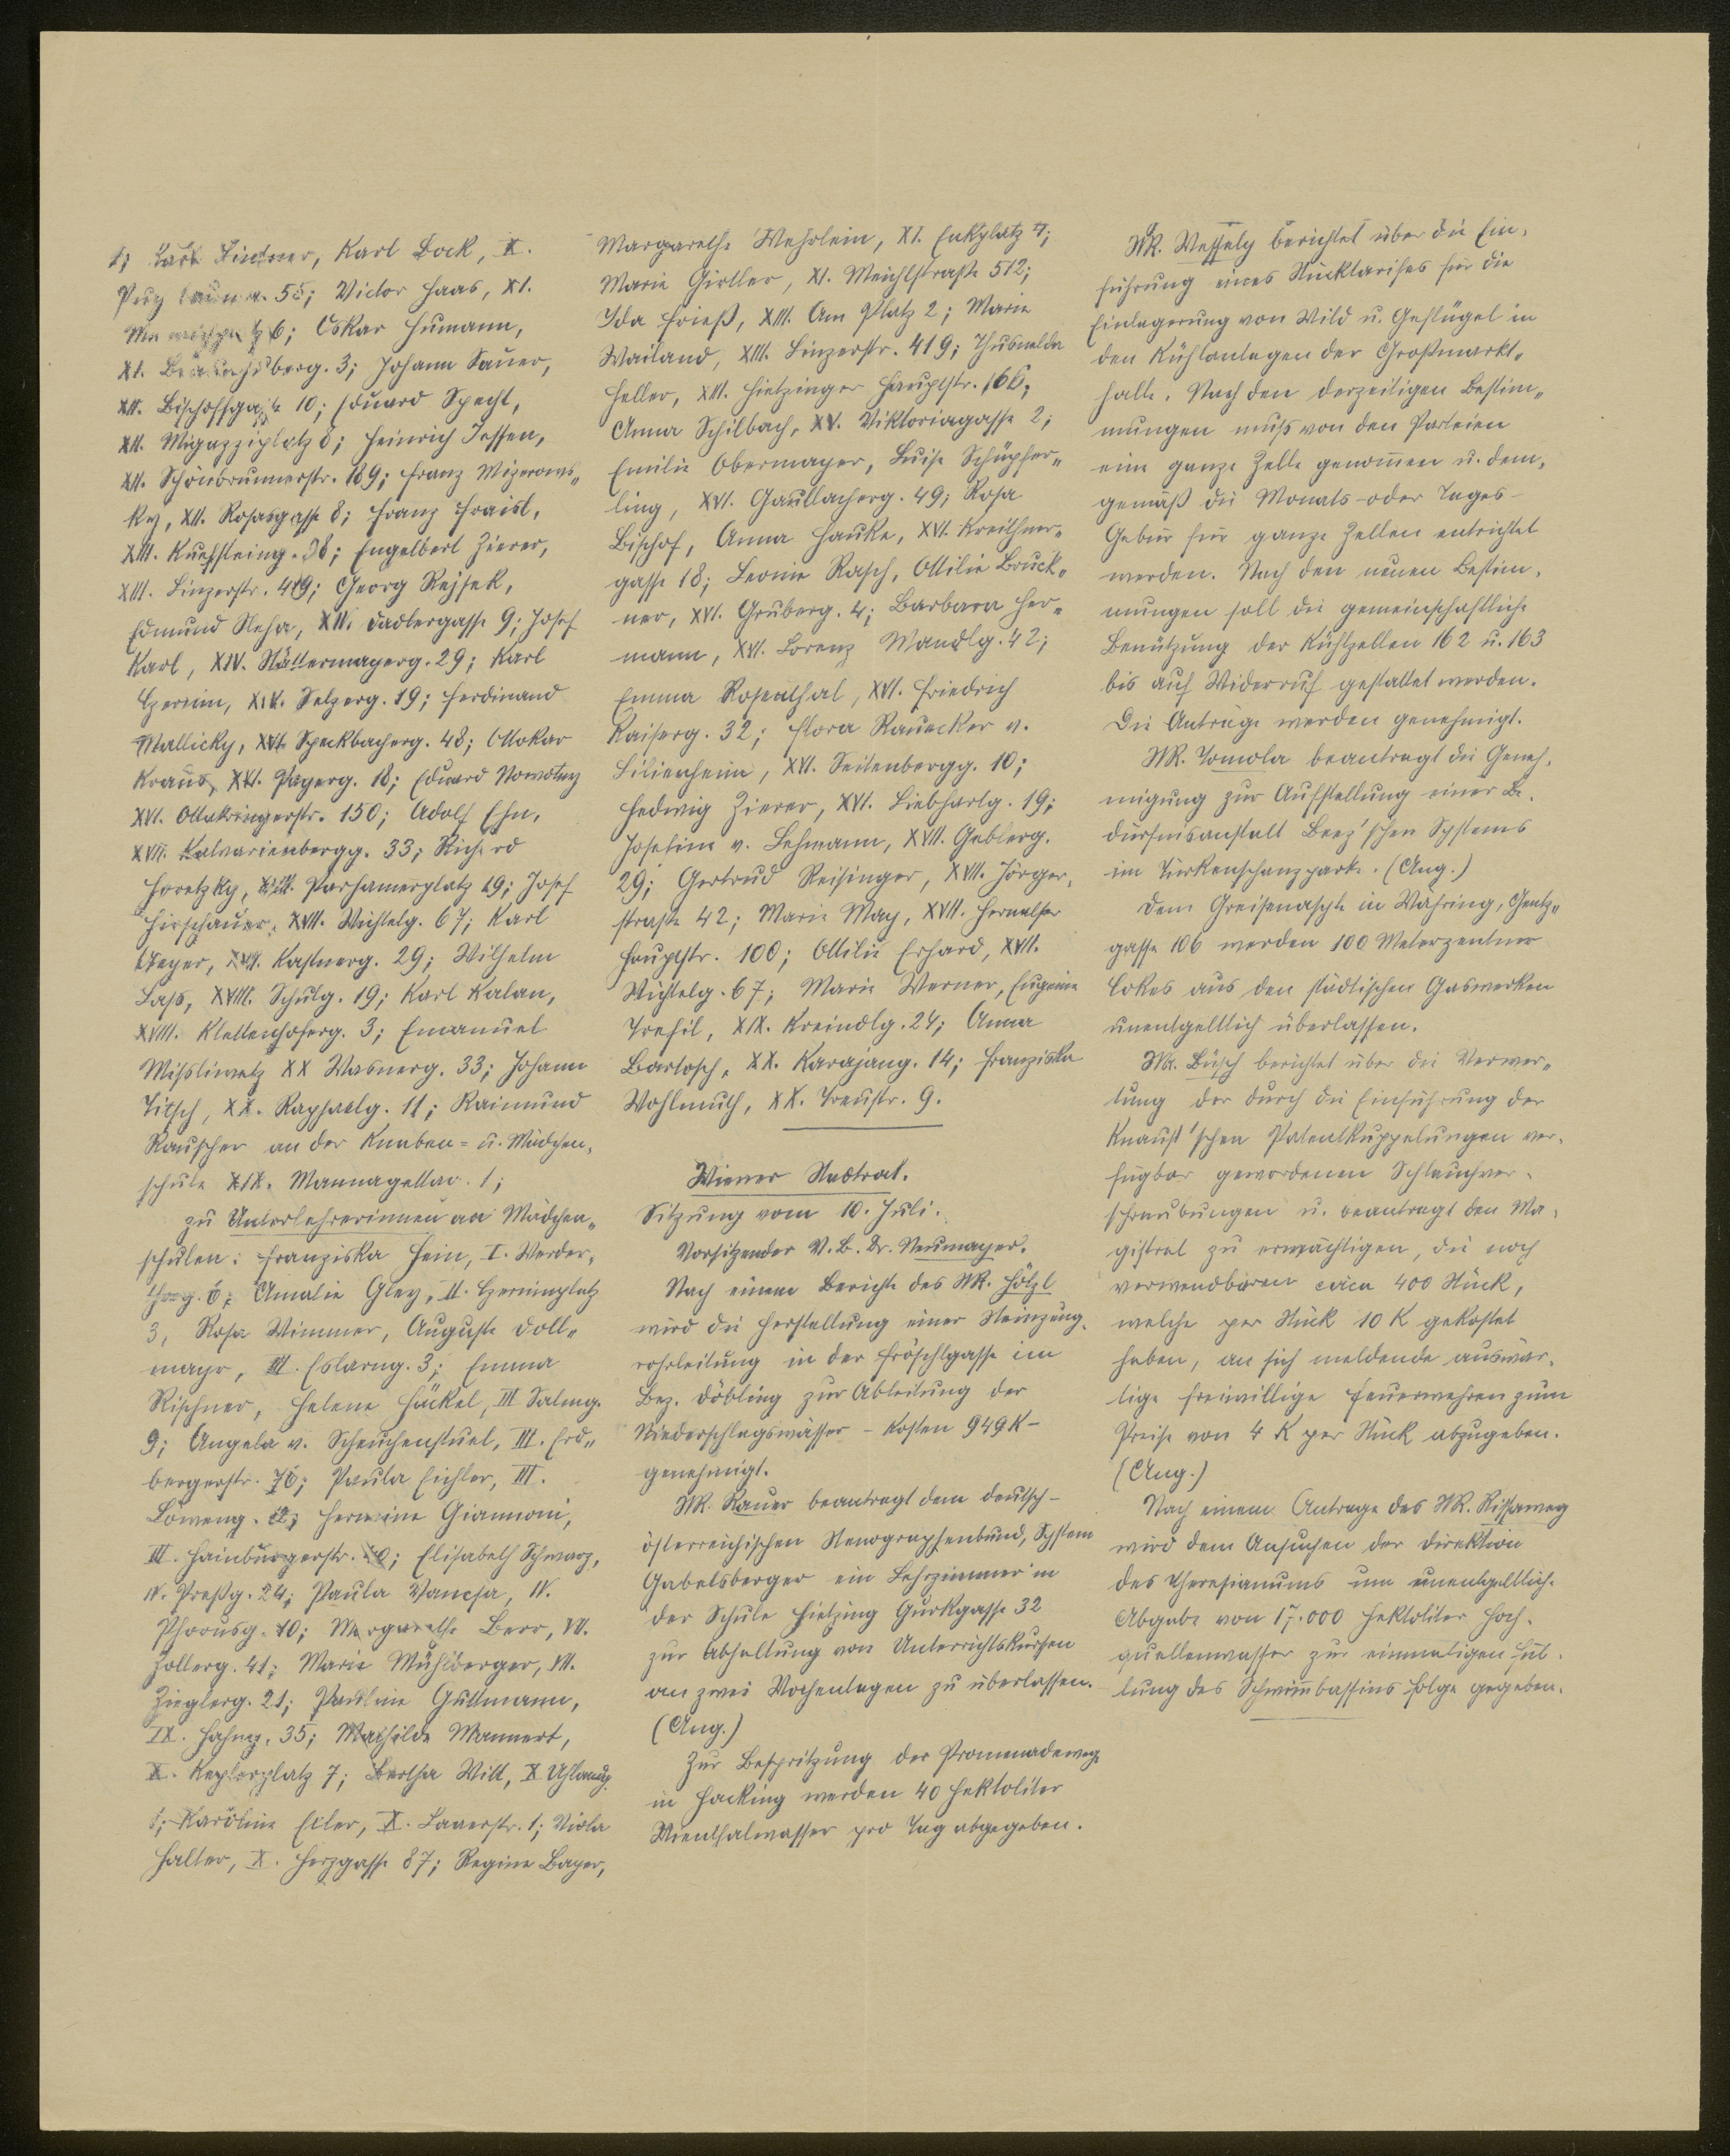 1; Karl Lindner, Karl Bock, X.
55; Victor Haas, XI.
6; Oskar Humann,
XI. Braunhubergg. 3; Johann Sauer,
XII. Bischoffgasse 10; Eduard Specht,
XII. Migazziplatz 8; Heinrich Jessen,
XII. Schönbrunnerstr. 189; Franz Mizerows„
ky, XII. Rosasgasse 8; Franz Fraisl,
XIII. Kuefsteing. 38; Engelbert Zierer,
XIII. Linzerstr. 419; Georg Rejsek,
Edmund Reha, XIV. Dadlergasse 9; Josef
Karl, XIV. Stättermayerg. 29; Karl
Czernin, XIV. Selzerg. 19; Ferdinand
Mallicky, XVI. Speckbacherg. 48; Ottokar
Kraus, XVI. Payerg. 18; Eduard Nowotny
XVI. Ottakringerstr. 150; Adolf Ehn,
XVII. Kalvarienbergg. 33; Richard
Horetzky, XVII. Parhamerplatz 19; Josef
Hirschauer, XVII. Wichtelg. 67; Karl
Mayer, XVII. Kastnerg. 29; Wilhelm
Lass, XVIII. Schulg. 19; Karl Kalan,
XVIII. Klettenhoferg. 3; Emanuel
Missliwetz XX Wasnerg. 33; Johann
Titsch, XX. Raphaelg. 11; Raimund
Rauscher an der Knaben= u. Mädchen-
schule XIX. Mannagettag. 1;
zu Unterlehrerinnen an Mädchen„
schulen: Franziska Hein, I. Werder-
thorg. 6; Amalie Gley, II. Czerninplatz
3, Rosa Wimmer, Auguste Doll„
mayr, III. Eslarng. 3; Emma
Rischner, Helene Häckel, III Salmg.
9; Angela v. Scheuchenstuel, III. Erd„
bergerstr. 76; Paula Eichler, III.
Löweng. Hermine Giannoni,
III. Hainburgerstr. Elisabeth Schwarz,
IV. Preßg. 24; Paula Vancsa, IV.
Phorusg. 10; Margarethe Berr, VII.
Zollerg. 41; Marie Mühlberger, VII.
Zieglerg. 21; Pauline Guttmann,
IX. Hahng. 35; Mathilde Mannert,
X. Keplerplatz 7; Bertha Will, X Uhlandg.
1; Karoline Eiler, X. Laaerstr. 1; Viola
Halter, X. Herzgasse 87; Regine Bayer,
Margarethe Wehrlein, XI. Enkplatz 4;
Marie Girtler, XI. Meichlstraße 512;
Ida Frieß, XIII. Am Platz 2; Marie
Wailand, XIII. Linzerstr. 419; Thusnelda
Heller, XIII. Hietzinger Hauptstr. 166;
Anna Schilbach, XV. Viktoriagasse 2;
Emilie Obermayer, Luise Schüpfer„
ling, XVI. Gaullacherg. 49; Rosa
Bischof, Anna Hauke, XVI. Kreithner„
gasse 18; Leonie Rasch, Ottilie Bruck„
ner, XVI. Gruberg. 4; Barbara Her„
mann, XVI. Lorenz Mandlg. 42;
Emma Rosenthal, XVI. Friedrich
Kaiserg. 32; Flora Rauecker v.
Lilienheim, XVI. Seitenbergg. 10;
Hedwig Zierer, XVI. Liebhartg. 19;
Josefine v. Lehmann, XVII. Geblerg.
29; Gertrud Reisinger, XVII. Jörger-
straße 42; Marie May, XVII. Hernalser
Hauptstr. 100; Ottilie Erhard, XVII.
Wichtelg. 67; Marie Werner, Eugenie
Trefil, XIX. Kreindlg. 24; Anna
Bartosch, XX. Karajang. 14; Franziska
Wohlmuth, XX. Treustr. 9.
Wiener Stadtrat.
Sitzung vom 10. Juli.
Vorsitzender V. B. Dr. Neumayer.
Nach einem Berichte des StR. Hölzl
wird die Herstellung einer Steinzeug-
rohrleitung in der Fröschlgasse im
Bez. Döbling zur Ableitung der
Niederschlagswässer – Kosten 949 K –
genehmigt.
StR. Rauer beantragt dem deutsch-
österreichischen Stenographenbund, System
Gabelsberger ein Lehrzimmer in
der Schule Hietzing Gurkgasse 32
zur Abhaltung von Unterrichtskursen
an zwei Wochentagen zu überlassen.
(Ang.)
Zur Bespritzung der Promenadewege
in Hacking werden 40 Hektoliter
Wienthalwasser pro Tag abgegeben.
StR. Wessely berichtet über die Ein-
führung eines Stücktarifes für die
Einlagerung von Wild u. Geflügel in
den Kühlanlagen der Großmarkt„
halle. Nach den derzeitigen Bestim„
mungen muß von den Parteien
eine ganze Zelle genommen u. dem-
gemäß die Monats- oder Tages-
Gebür für ganze Zellen entrichtet
werden. Nach den neuen Bestim-
mungen soll die gemeinschaftliche
Benützung der Kühlzellen 162 u. 163
bis auf Widerruf gestattet werden.
Die Anträge werden genehmigt.
StR. Tomola beantragt die Geneh-
migung zur Aufstellung einer Be-
dürfnisanstalt Beez'schen Systems
im Türkenschanzpark. (Ang.)
Dem Greisenasyle in Währing, Gentz„
gasse 106 werden 100 Meterzentner
Cokes aus den städtischen Gaswerken
unentgeltlich überlassen.
StR. Büsch berichtet über die Verwer„
tung der durch die Einführung der
Knaust'schen Patentkuppelungen ver-
fügbar gewordenen Schlauchver-
schraubungen u. beantragt den Ma-
gistrat zu ermächtigen, die noch
verwendbaren circa 400 Stück,
welche per Stück 10 K gekostet
haben, an sich meldende auswär-
tige freiwillige Feuerwehren zum
Preise von 4 K per Stück abzugeben.
(Ang.)
Nach einem Antrage des StR. Rissaweg
wird dem Ansuchen der Direktion
des Theresianums um unentgeltliche
Abgabe von 17.000 Hektoliter Hoch-
quellenwasser zur einmaligen Fül-
lung des Schwimmbassins Folge gegeben.